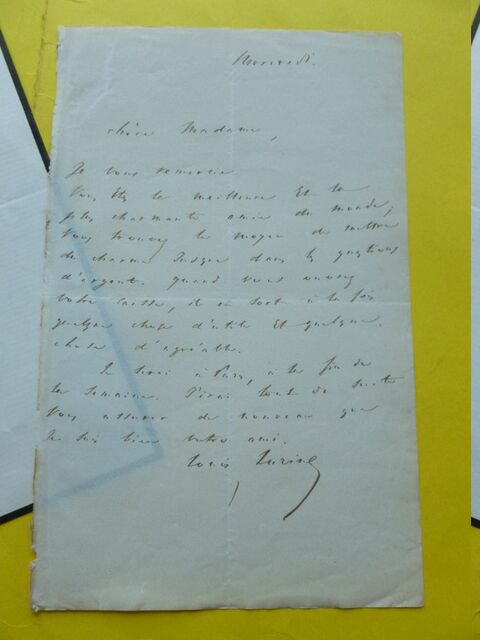 Mercredi.
chère Madame,
Je vous remercie.
Vous êtes la meilleure Et la
plus charmante amie du monde;
Vous trouvez le moyen de mettre
du charme Jusque dans les questions
d'argent. quand vous ouvrez
votre caisse, il en sort à la fois
quelque chose d'utile Et quelque
chose d'agréable.
Je serai à Paris, à la fin de
la semaine. J'irai tout de suite
Vous assurer de nouveau que
Je suis bien votre ami.
Louis Lurine